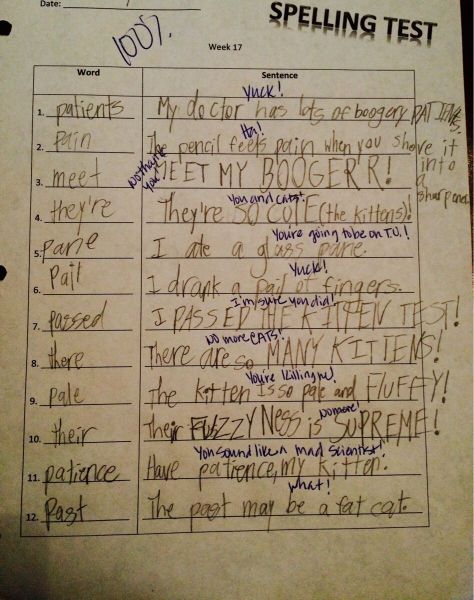 Date:
SPELLING TEST
100%
Week 17
Word Sentence
Yuck!
1. patients My doctor has lots of boogery PATIENTS.
Ha!
2. pain The pencil feels pain when you shove it into a sharpener
No thank you!
3. meet MEET MY BOOGER'R!
You and cats!
4. they're They're SO CUTE (the kittons)!
You're going to be on T.V.!
5. pane I ate a glass pane.
Yuck!
6. pail I drank a pail of fingers.
I'm sure you did!
7. passed I PASSED THE KITTEN TEST!
No more CATS!
8. there There are so MANY KITTENS!
You're killing me!
9. pale The kitten is so pale and FLUFFY!
No more!
10. their Their FUZZYNess is SUPREME!
You sound like a mad scientist!
11. patience Have patience, my kitten.
What!
12. Past The past may be a fat cat.